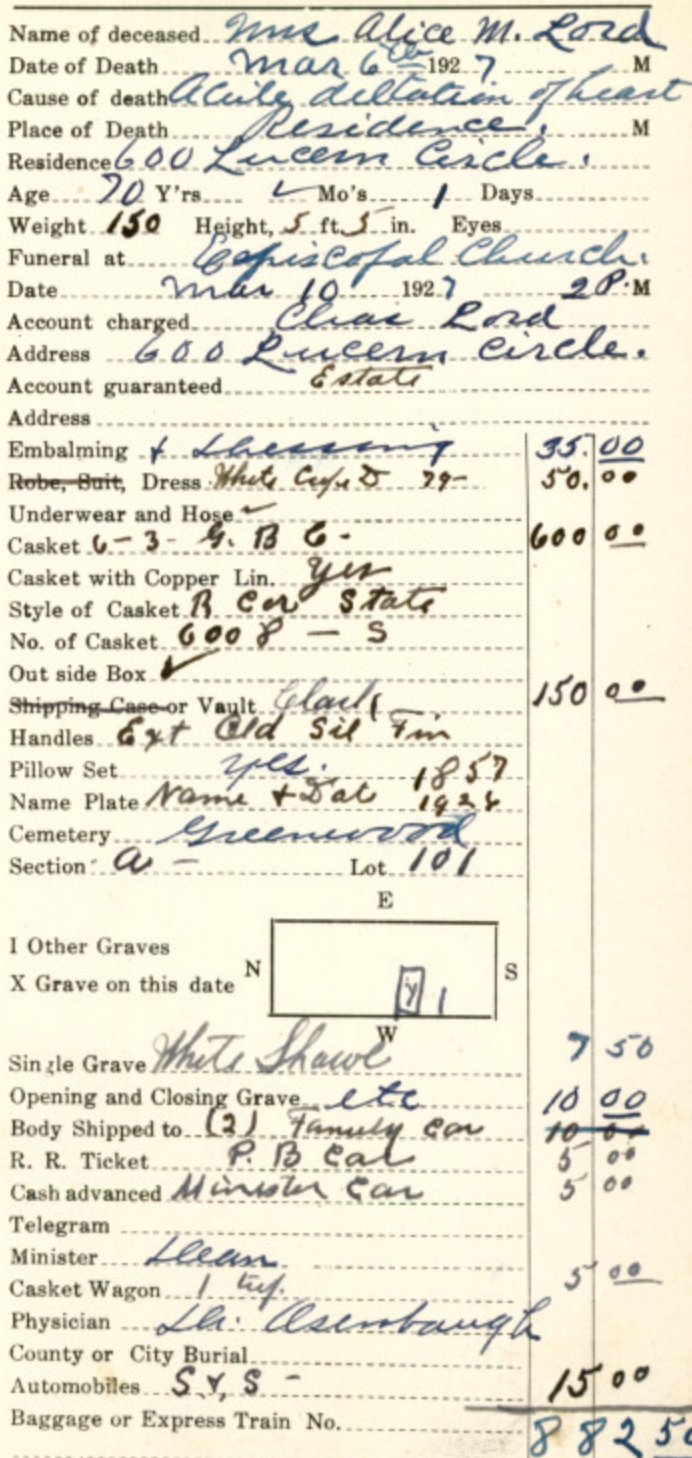 Name of deceased Mrs Alice M. Lord
Date of Death Mar 6th 1927 M
Cause of death Acute diltation of heart
Place of Death Residence. M
Residence 600 Lucern Circle.
Age 70 Y'rs Mo's 1 Days
Weight 150 Height, 5 ft. 5 in. Eyes
Funeral at Episcopal Church.
Date Mar 10 1927 2 P. M
Account charged Chas Lord
Address 600 Lucern Circle.
Account guaranteed Estate
Address
Embalming & Dressing 35.00
Robe, Suit, Dress White 50.00
Underwear and Hose
Casket 6-3- G. B 6- 600 00
Casket with Copper Lin. yes
Style of Casket R Cor State
No. of Casket 6008 - S
Out side Box ✓
Shipping Case or Vault Clark 150 00
Handles Ext Old Sil Fin
Pillow Set yes. 1857
Name Plate Name & Dat 1926
Cemetery Greenwood
Section A - Lot 101
E
I Other Graves
N S
X Grave on this date
W
Single Grave White Shawl 7 50
Opening and Closing Grave etc 10 00
Body Shipped to (2) Family car 10 00
R. R. Ticket P. B Car 5 00
Cash advanced Minister Car 5 00
Telegram
Minister Dean
Casket Wagon 1 5 00
Physician Dr. Asenbaugh
County or City Burial
Automobiles S & S - 15 00
Baggage or Express Train No.
882 50